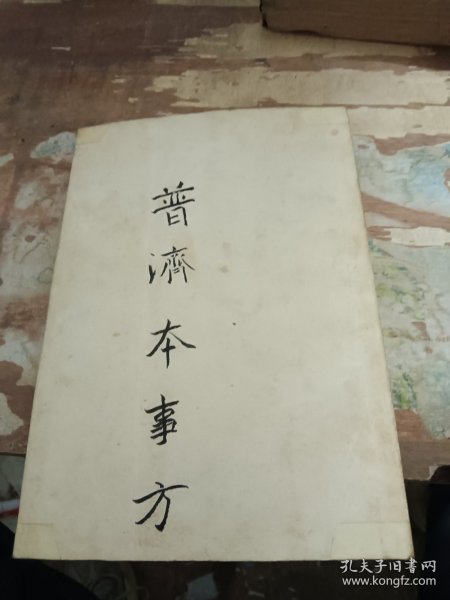 普濟本事方
孔夫子旧书网
www.kongfz.com